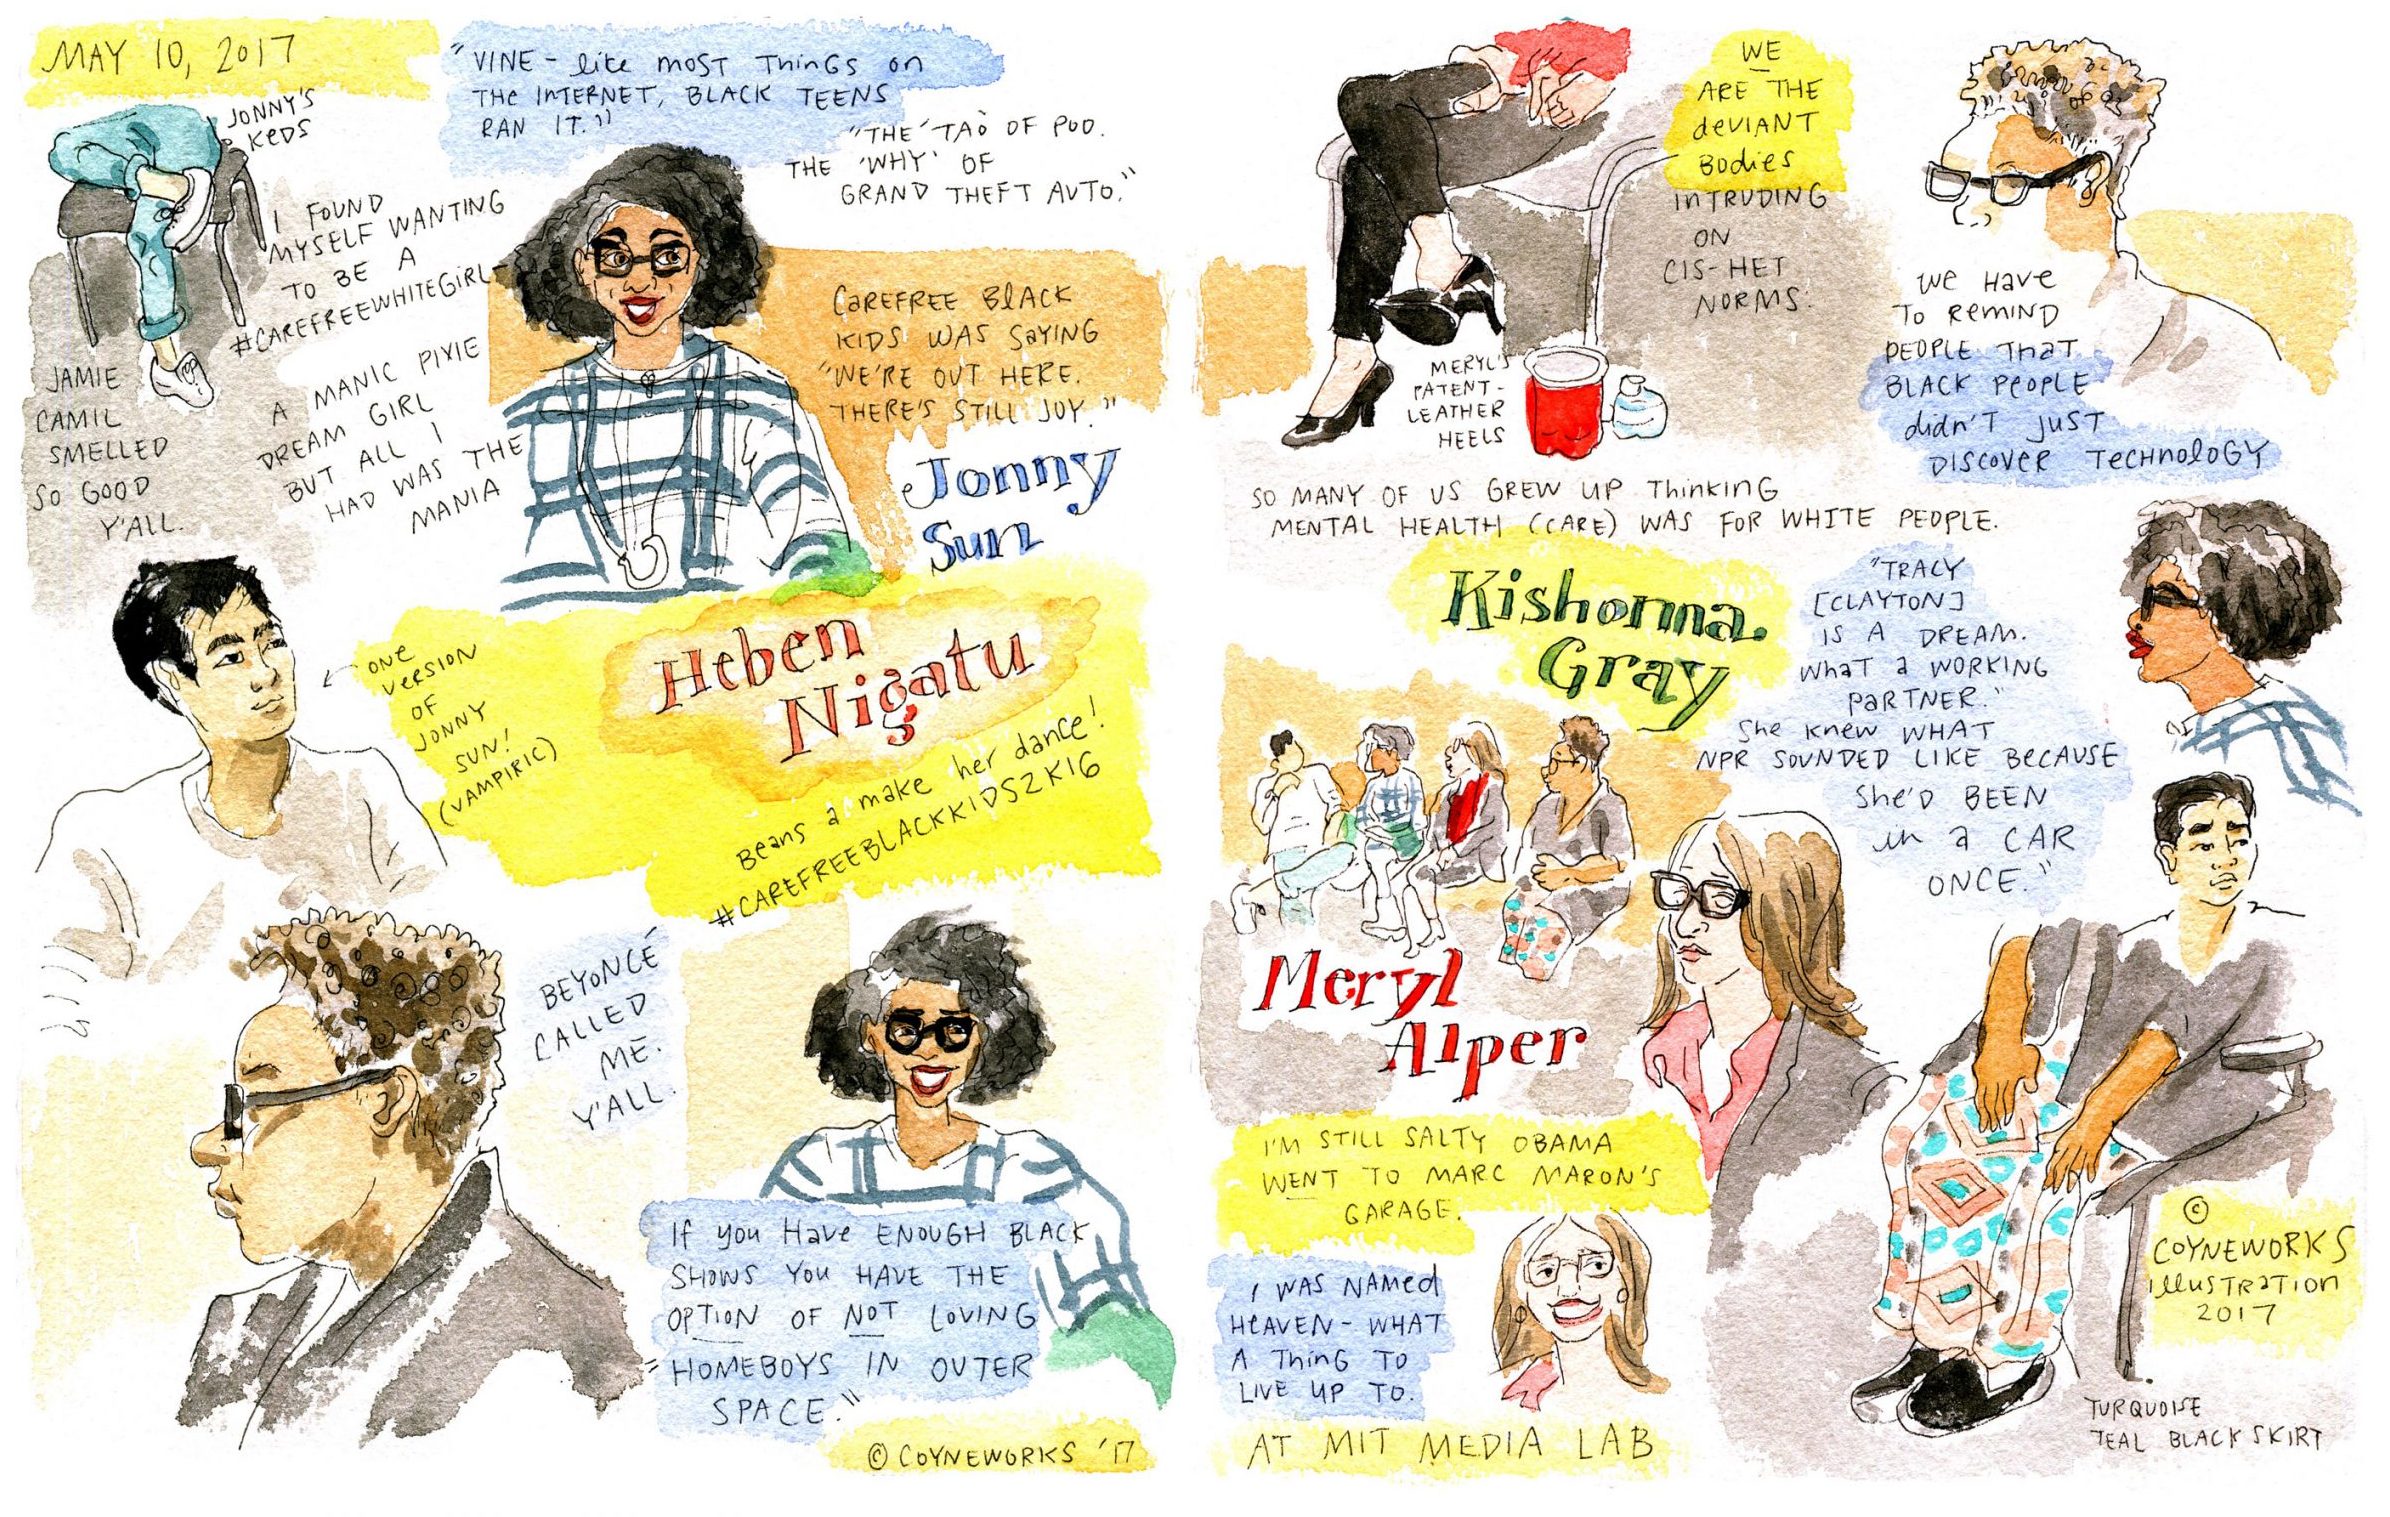 MAY 10, 2017
"VINE - like MOST THINGS on
THE INTERNET, BLACK TEENS
RAN IT."
JONNY'S
KEDS
"THE 'TAO' OF POO.
THE 'WHY' OF
GRAND THEFT AUTO."
I FOUND
MYSELF WANTING
TO BE A
#CAREFREEWHITEGIRL-
A MANIC PIXIE
DREAM GIRL
BUT ALL I
HAD WAS THE
MANIA
JAMIE
CAMIL
SMELLED
SO GOOD
Y'ALL.
CAREFREE BLACK
KIDS WAS SAYING
"WE'RE OUT HERE.
THERE'S STILL JOY."
Jonny
Sun
ONE
VERSION
OF
JONNY
SUN!
(VAMPIRIC)
Heben
Nigatu
Beans a make her dance!
#CAREFREEBLACKKIDS2K16
BEYONCÉ
CALLED
ME.
Y'ALL.
If you Have ENOUGH BLACK
SHOWS YOU HAVE THE
OPTION OF NOT LOVING
"HOMEBOYS IN OUTER
SPACE."
© COYNEWORKS '17
WE
ARE THE
deVIANT
BODIES
INTRUDING
ON
CIS-HET
NORMS.
MERYL'S
PATENT-
LEATHER
HEELS
We HAVE
TO REMIND
PEOPLE THAT
BLACK PEOPLE
didn'T JUST
DISCOVER TECHNOLOGY
SO MANY OF US GREW UP THINKING
MENTAL HEALTH (CARE) WAS FOR WHITE PEOPLE.
Kishonna
Gray
"TRACY
[CLAYTON]
IS A DREAM.
WHAT a WORKING
PARTNER."
She KNEW WHAT
NPR SOUNDED LIKE BECAUSE
SHE'D BEEN
in a CAR
ONCE."
Meryl
Alper
I'M STILL SALTY OBAMA
WENT TO MARC MARON'S
GARAGE.
I WAS NAMED
HEAVEN - WHAT
A THING TO
LIVE UP TO.
AT MIT MEDIA LAB
©
COYNEWORKS
illUSTRATION
2017
TURQUOISE
TEAL BLACK SKIRT